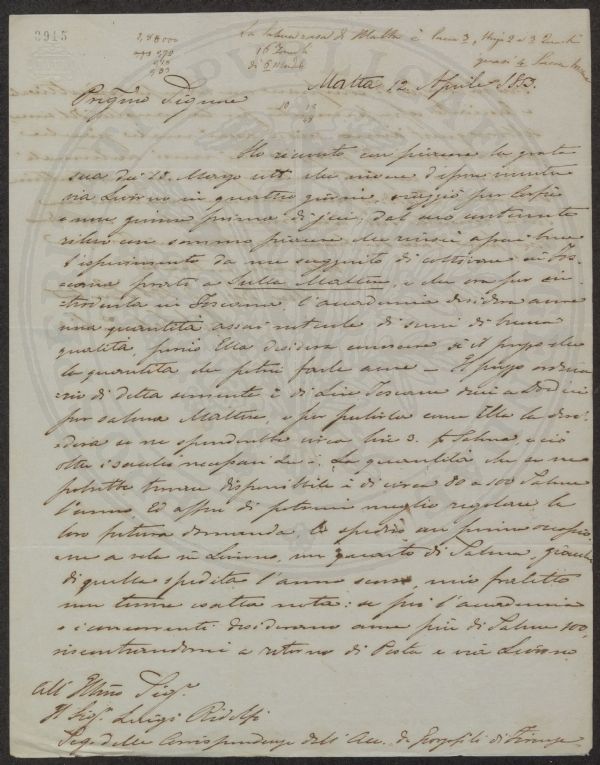 3915
La salma rasa di Malta è sacca 3, staja 2 e 3
16
di
Malta 12 Aprile 1853.
Pregmo Signore
Ho ricevuto con piacere la grata
sua dei 18 Marzo che viene d'esser
via Livorno in quattro giorni, viaggio per Corfù
e non giunse prima di jeri; dal suo contenuto
rilevo con sommo piacere che riuscì a
l'esperimento da me suggerito di coltivare in Tos-
cana prati a Sulla Maltese, e che ora per in-
trodurla in Toscana l'accademia desidera avere
una quantità assai notabile di semi di buona
qualità, perciò Ella desidera conoscere se il prezzo che
la quantità che potrei farle avere — Il prezzo ordina
rio di detta semente è di Lire Toscane dieci a Dodici
per salma Maltese, e per pulirla come Ella la desi-
dera se ne spenderebbe circa lire 3. salma, e ciò
oltre i sacchi necessari. La quantità che se ne
potrebbe tenere disponibile è di circa 80 a 100 Salme
l'anno. Ed affin di potermi meglio regolare la
loro futura domanda Le spedirò con prima occasio-
ne a vela in Livorno, un quarto di Salma, giacchè
di quella spedita l'anno scorso mio fratello
non tenne esatta nota: se poi l'accademia
e i concorrenti desiderano avere più di Salme 100,
riscontrandomi a ritorno di Posta e via Livorno
All' Illmo Sigr
Il Sigr Luigi Ridolfi
Sego delle Corrispondenze dell' Acc. de Georgofili di Firenze